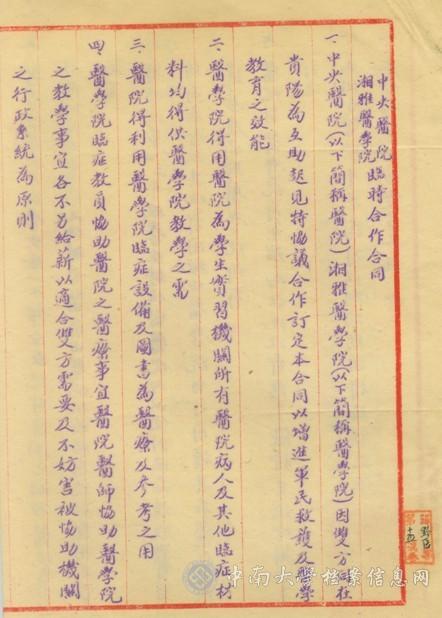 中央醫院
湘雅醫學院
臨時合作合同
一、中央醫院(以下簡稱醫院)湘雅醫學院(以下簡稱醫學院)因雙方同在
貴陽為互助起見特協議合作訂定本合同以增進軍民救護及醫學
教育之效能
二、醫學院得用醫院為學生實習機關所有醫院病人及其他臨症材
料均得供醫學院教學之需
三、醫院得利用醫學院臨症設備及圖書為醫療及參考之用
四、醫學院臨症教員協助醫院之醫療事宜醫院醫師協助醫學院
之教學事宜各不另給薪以適合雙方需要及不妨害被協助機關
之行政系統為原則
中南大學檔案信息网